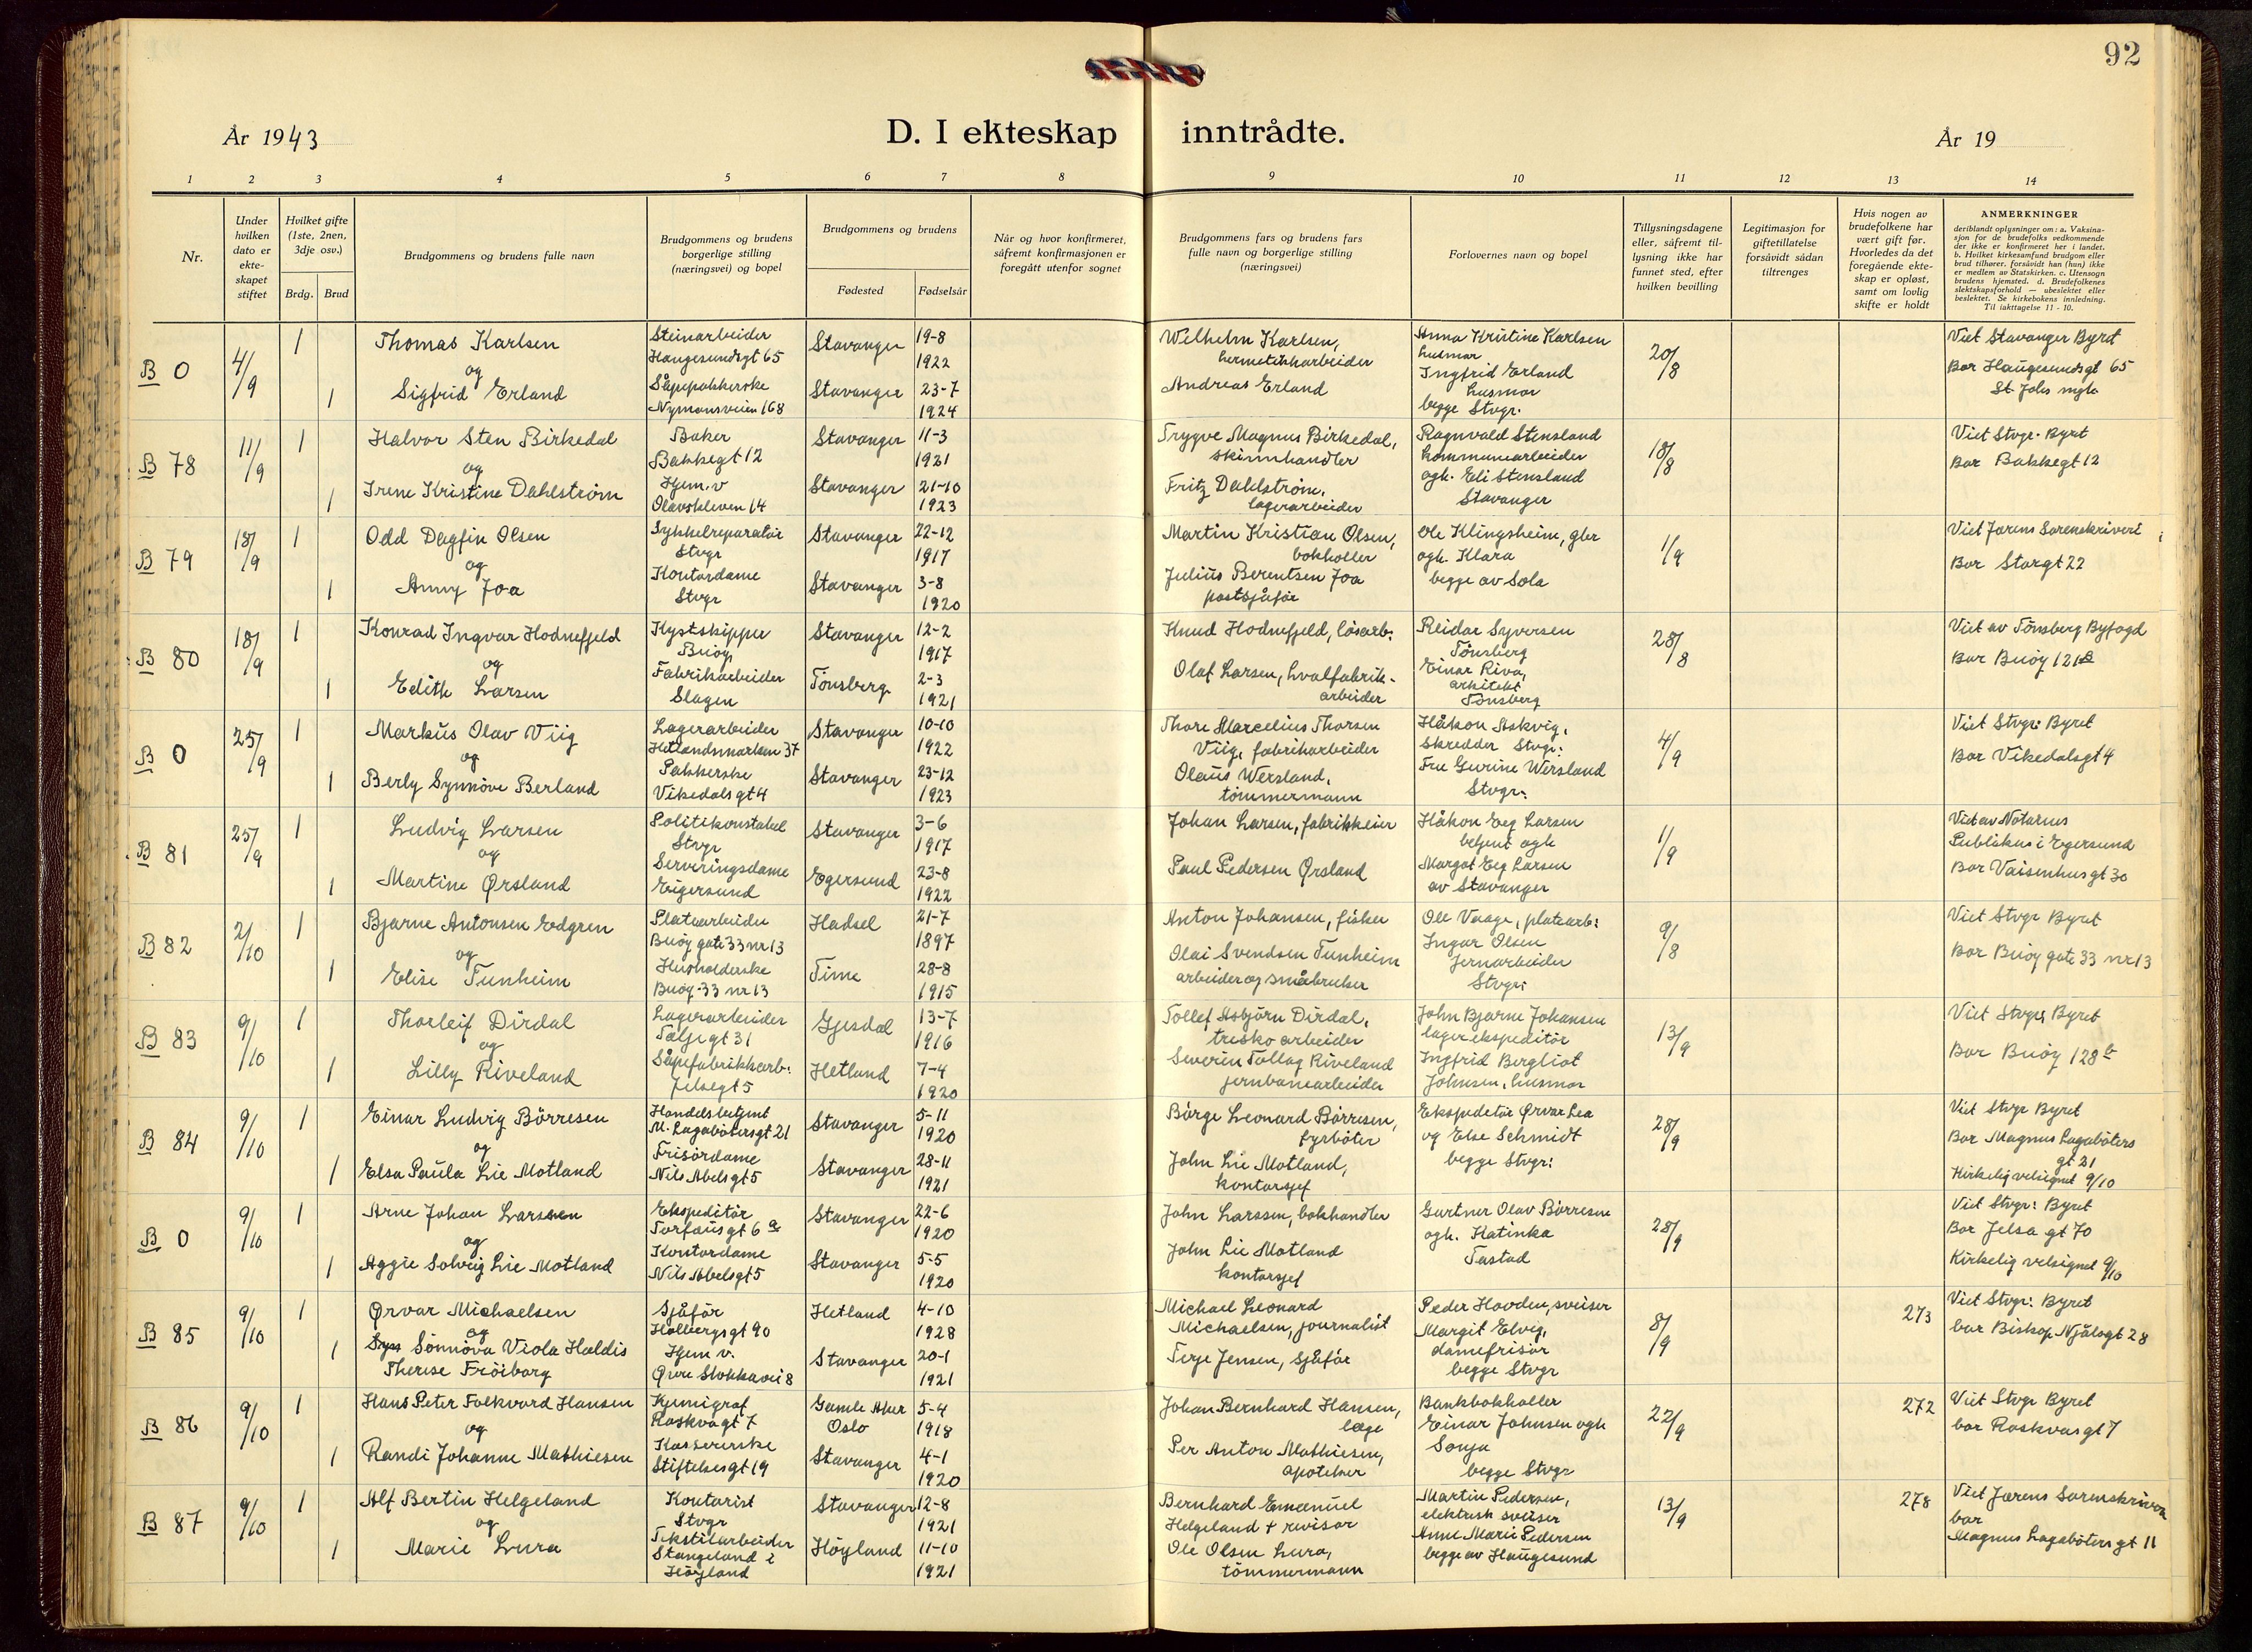 92
År 1943
D. I ekteskap inntrådte.
År 19
1 2 3 4 5 6 7 8 9 10 11 12 13 14
Nr.
Under hvilken dato er ekteskapet stiftet
Hvilket gifte (1ste, 2nen, 3dje osv.)
Brdg. Brud
Brudgommens og brudens fulle navn
Brudgommens og brudens borgerlige stilling (næringsvei) og bopel
Brudgommens og brudens
Fødested Fødselsår
Når og hvor konfirmeret, såfremt konfirmasjonen er foregått utenfor sognet
Brudgommens fars og brudens fars fulle navn og borgerlige stilling (næringsvei)
Forlovernes navn og bopel
Tillysningsdagene eller, såfremt tillysning ikke har funnet sted, efter hvilken bevilling
Legitimasjon for giftetillatelse forsåvidt sådan tiltrenges
Hvis nogen av brudefolkene har vært gift før. Hvorledes da det foregående ekteskap er opløst, samt om lovlig skifte er holdt
ANMERKNINGER
deriblandt oplysninger om: a. Vaksinasjon for de brudefolks vedkommende der ikke er konfirmeret her i landet. b. Hvilket kirkesamfund brudgom eller brud tilhører, forsåvidt han (hun) ikke er medlem av Statskirken. c. Utensogn brudens hjemsted. d. Brudefolkenes slektskapsforhold — ubeslektet eller beslektet. Se kirkebokens innledning. Til iakttagelse 11 - 10.
B 0
4/9
1
Thomas Karlsen
og
1
Sigfrid Erland
Steinarbeider
Haugesundsgt 65
Såpepakkerske
Nymansveien 168
Stavanger 19-8
1922
Stavanger 23-7
1924
Wilhelm Karlsen,
hermetikkarbeider
Andreas Erland
Anna Kristine Karlsen
husmor
Ingfrid Erland
husmor
begge Stvgr.
20/8
Viet Stavanger Byret
Bor Haugesundsgt 65
St. Johs mgh
B 78
11/9
1
Halvor Sten Birkedal
og
1
Irene Kristine Dahlström
Baker
Bakkegt 12
Hjem.v
Olavskleven 14
Stavanger 11-3
1921
Stavanger 21-10
1923
Trygve Magnus Birkedal,
skinnhandler
Fritz Dahlström,
lagerarbeider
Ragnvald Stensland
kommunearbeider
ogh. Eli Stensland
Stavanger
18/8
Viet Stvgr. Byret
Bor Bakkegt 12
B 79
18/9
1
Odd Dagfin Olsen
og
1
Anny Joa
Sykkelreparatör
Stvgr
Kontordame
Stvgr
Stavanger 22-12
1917
Stavanger 3-8
1920
Martin Kristian Olsen,
bokholler
Julius Berentsen Joa
postsjåför
Ole Klingsheim, gbr
ogh. Klara
begge av Sola
1/9
Viet Jærens Sorenskriveri
Bor Storgt 22
B 80
18/9
1
Konrad Ingvar Hodnefjeld
og
1
Edith Larsen
Kystskipper
Buöy
Fabrikarbeider
Slagen
Stavanger 12-2
1917
Tönsberg 2-3
1921
Knud Hodnefjeld, lösarb.
Olaf Larsen, hvalfabrik-
arbeider
Reidar Syversen
Tönsberg
Einar Riva,
arkitekt
Tönsberg
28/8
Viet av Tönsberg Byfogd
Bor Buöy 121
B 0
25/9
1
Markus Olav Viig
og
1
Berly Synnöve Berland
Lagerarbeider
Hetlandsmarken 37
Pakkerske
Vikedalsgt 4
Stavanger 10-10
1922
Stavanger 23-12
1923
Thore Marcelius Thorsen
Viig, fabrikarbeider
Olaus Wersland,
tömmermann
Håkon Askvig,
skredder Stvgr.
Fru Gurine Wersland
Stvgr.
4/9
Viet Stvgr: Byret
Bor Vikedalsgt 4
B 81
25/9
1
Ludvig Larsen
og
1
Martine Ørsland
Politikonstabel
Stvgr
Serveringsdame
Eigersund
Stavanger 3-6
1917
Egersund 23-8
1922
Johan Larsen, fabrikkeier
Paul Pedersen Ørsland
Håkon Eeg Larsen
betjent ogh
Margot Eeg Larsen
av Stavanger
1/9
Viet av Notarius
Publikus i Egersund
Bor Vaisenhusgt 30
B 82
2/10
1
Bjarne Antonsen Edgren
og
1
Elise Tunheim
Platearbeider
Buöy gate 33 nr 13
Husholderske
Buöy 33 nr 13
Hadsel 21-7
1897
Time 28-8
1915
Anton Johansen, fisker
Olai Svendsen Tunheim
arbeider og småbruker
Ole Vaage, platearb:
Ingar Olsen
jernarbeider
Stvgr:
9/8
Viet Stvgr Byret
Bor Buöy gate 33 nr 13
B 83
9/10
1
Thorleif Dirdal
og
1
Lilly Riveland
Lagerarbeider
Taljegt 31
Såpefabrikkarb:
Jelsegt 5
Gjesdal 13-7
1916
Hetland 7-4
1920
Tollef Asbjörn Dirdal,
tresko arbeider
Severin Tollag Riveland
jernbanearbeider
John Bjarne Johansen
lagerekspeditör
Ingfrid Bergliot
Johnsen, husmor
13/9
Viet Stvgr Byret
Bor Buöy 128 b
B 84
9/10
1
Einar Ludvig Börresen
og
1
Elsa Paula Lie Motland
Handelsbetjent
M. Lagabötersgt 21
Frisördame
Nils Abelsgt 5
Stavanger 5-11
1920
Stavanger 28-11
1921
Börge Leonard Börresen,
fyrböter
John Lie Motland,
kontorsjef
Ekspeditör Ørvar Lea
og Else Schmidt
begge Stvgr:
28/9
Viet Stvgr Byret
Bor Magnus Lagaböters
gt 21
Kirkelig velsignet 9/10
B 0
9/10
1
Arne Johan Larssen
og
1
Aggie Solveig Lie Motland
Ekspeditör
Torfæusgt 6 a
Kontordame
Nils Abelsgt 5
Stavanger 22-6
1920
Stavanger 5-5
1920
John Larssen, bokhandler
John Lie Motland
kontorsjef
Gartner Olav Börresen
ogh. Katinka
Tastad
28/9
Viet Stvgr: Byret
Bor Jelsa gt 70
Kirkelig velsignet 9/10
B 85
9/10
1
Ørvar Michaelsen
og
1
Sönnöva Viola Haldis
Therese Fröiborg
Sjåför
Holbergsgt 90
Hjem v.
Øvre Stokkavei 8
Hetland 4-10
1928
Stavanger 20-1
1921
Michael Leonard
Michaelsen, journalist
Terje Jensen, sjåför
Peder Hovden, sveiser
Margit Elvig,
damefrisör
begge Stvgr
8/9
273
Viet Stvgr: Byret
bor Biskop Njålsgt 28
B 86
9/10
1
Hans Peter Folkvard Hansen
og
1
Randi Johanne Mathiesen
Kjemigraf
Roskvagt 7
Kassererske
Stiftelsesgt 19
Gamle Aker 5-4
Oslo 1918
Stavanger 4-1
1920
Johan Bernhard Hansen,
læge
Per Anton Mathiesen,
apoteker
Bankbokholler
Einar Johnsen ogh
Sonja
begge Stvgr
22/9
272
Viet Stvgr Byret
bor Roskvasgt 7
B 87
9/10
1
Alf Bertin Helgeland
og
1
Marie Lura
Kontorist
Stvgr
Tekstilarbeider
Stangeland i
Höyland
Stavanger 12-8
1921
Höyland 11-10
1921
Bernhard Emanuel
Helgeland + revisor
Ole Olsen Lura,
tömmermann
Martin Pedersen,
elektrisk sveiser
Anne Marie Pedersen
begge av Haugesund
13/9
278
Viet Jærens Sorenskriver
bor
Magnus Lagaböters gt 11